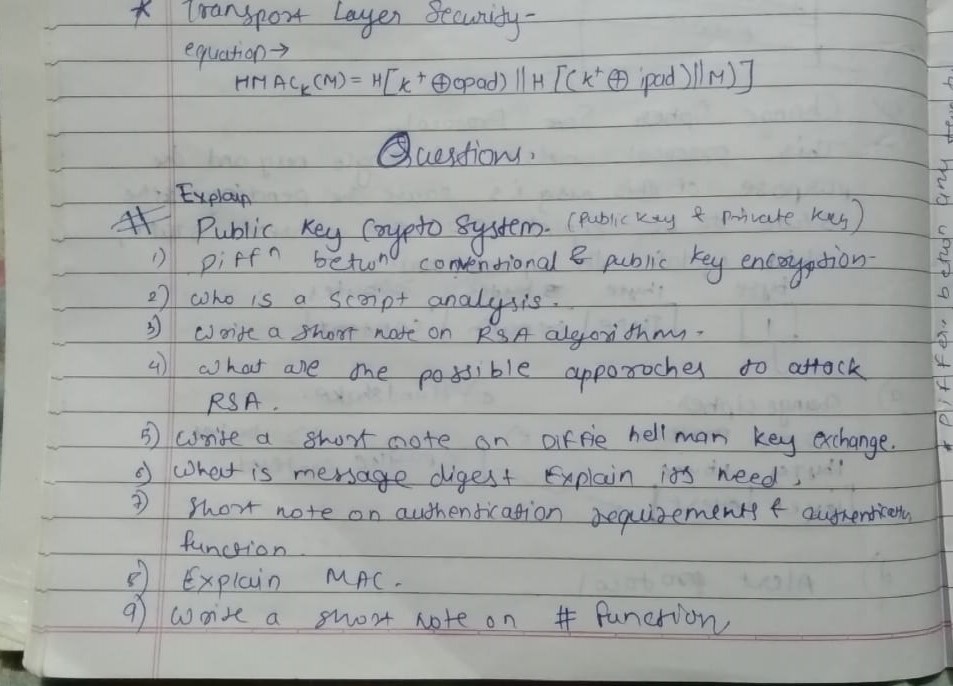 * Transport Layer Security-
equation →
HMACK(M) = H[K+ ⊕ opad) || H [(K+ ⊕ ipad) || M)]
Question.
Explain
# Public Key Crypto System. (Public Key & Private Key)
1) Diffn betwn conventional & public key encryption-
2) who is a script analysis.
3) write a short note on RSA algorithms.
4) what are the possible apporoches to attack
RSA.
5) write a short note on Diffie hell man key exchange.
6) what is message digest Explain its need,
7) short note on authentication requirements &
function
8) Explain MAC.
9) write a short note on # function